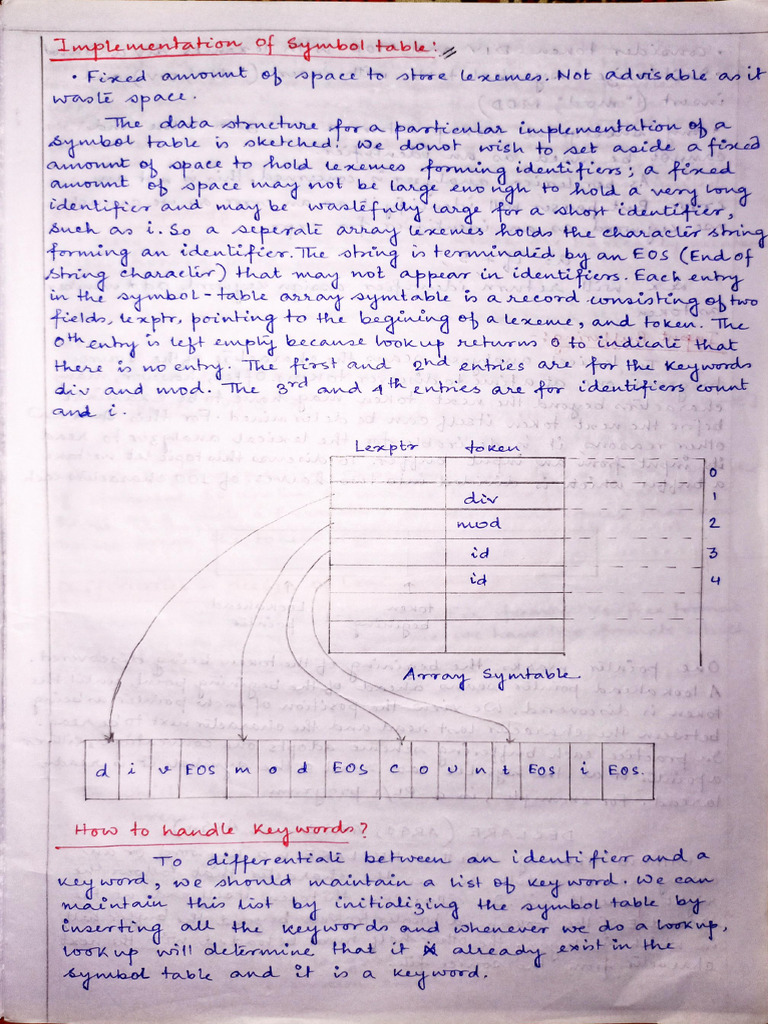 Implementation of Symbol table:
• Fixed amount of space to store lexemes. Not advisable as it
waste space.
The data structure for a particular implementation of a
symbol table is sketched. We donot wish to set aside a fixed
amount of space to hold lexemes forming identifiers; a fixed
amount of space may not be large enough to hold a very long
identifier and may be wastefully large for a short identifier,
such as i. So a seperate array lexemes holds the character string
forming an identifier. The string is terminated by an EOS (End of
string character) that may not appear in identifiers. Each entry
in the symbol-table array symtable is a record consisting of two
fields, lexptr, pointing to the begining of a lexeme, and token. The
0th entry is left empty because lookup returns 0 to indicate that
there is no entry. The first and 2nd entries are for the keywords
div and mod. The 3rd and 4th entries are for identifiers count
and i.
Lexptr token
0
div 1
mod 2
id 3
id 4
Array Symtable
d i v EOS m o d EOS c o u n t EOS i EOS.
How to handle keywords?
To differentiate between an identifier and a
keyword, we should maintain a list of keyword. We can
maintain this list by initializing the symbol table by
inserting all the keywords and whenever we do a lookup,
lookup will determine that it already exist in the
symbol table and it is a keyword.